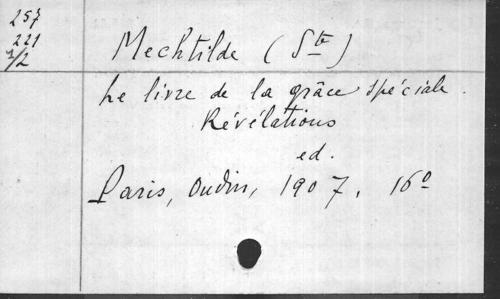 257
221
1/2
Mechtilde (Ste)
Le livre de la grâce spéciale.
Révélations
ed.
Paris, Oudin, 1907. 16º